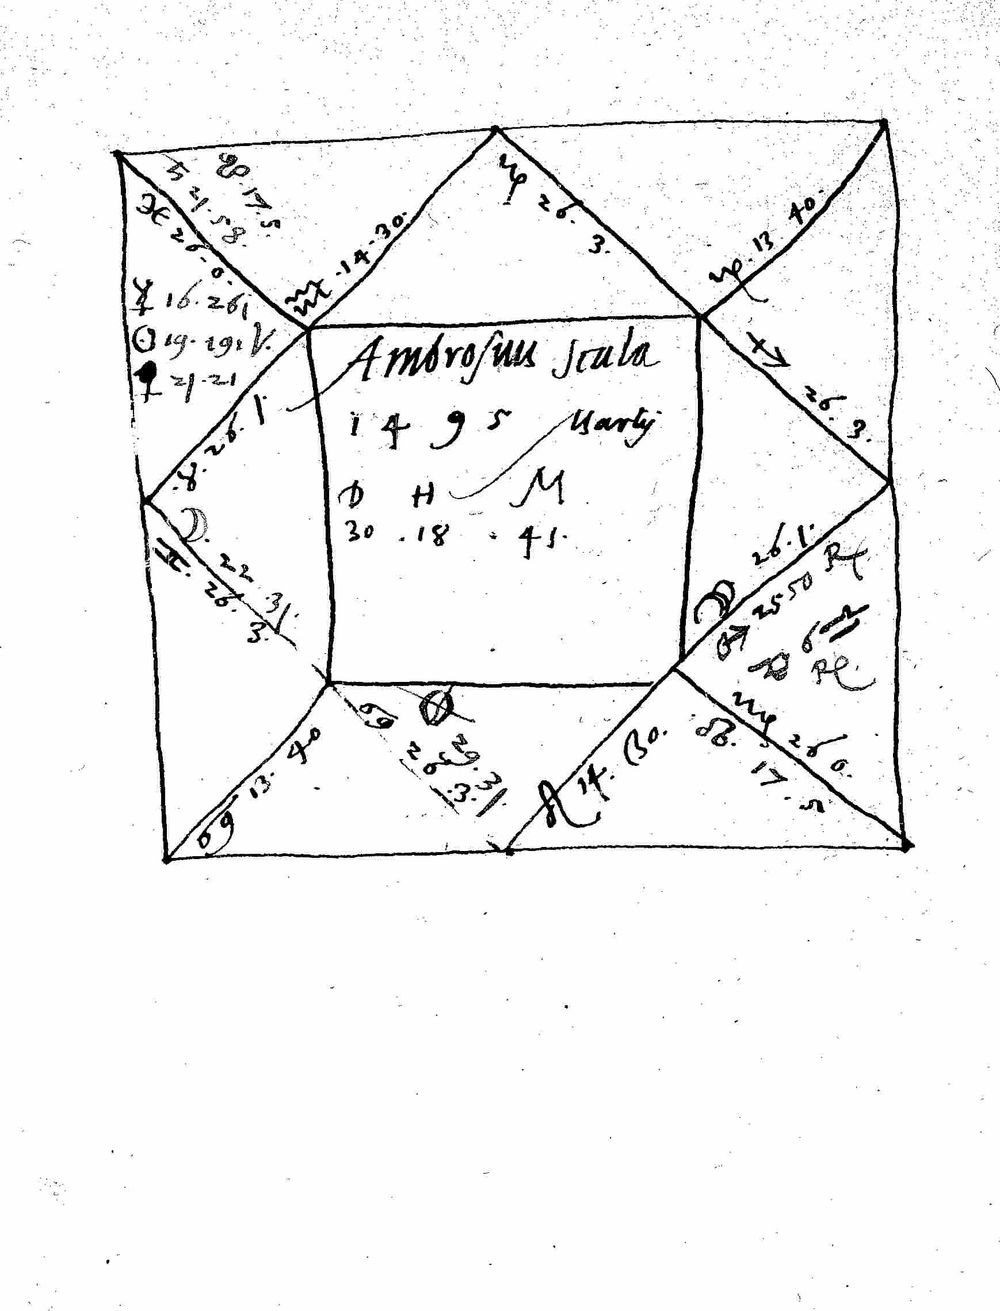 ♄ 21.58.
☊ 17.5.
♓ 26.0.
♒ .14.30.
♑ 26. 3.
♑. 13 40.
☿ 16.26
☉ 19.29
♀ 21.21
Ambrosius Scala
1 4 9 5 Martij
D H M
30 .18 . 41.
♐ 26. 3.
♉. 26. 1.
☽. 22 31.
♊. 26. 3.
26.1.
♂ 25 50 ℞
♃ ℞
♋ 13. 40
♋ 26 3.
29.31.
♌ 14. 30.
♍ 26 0.
☋. 17.5